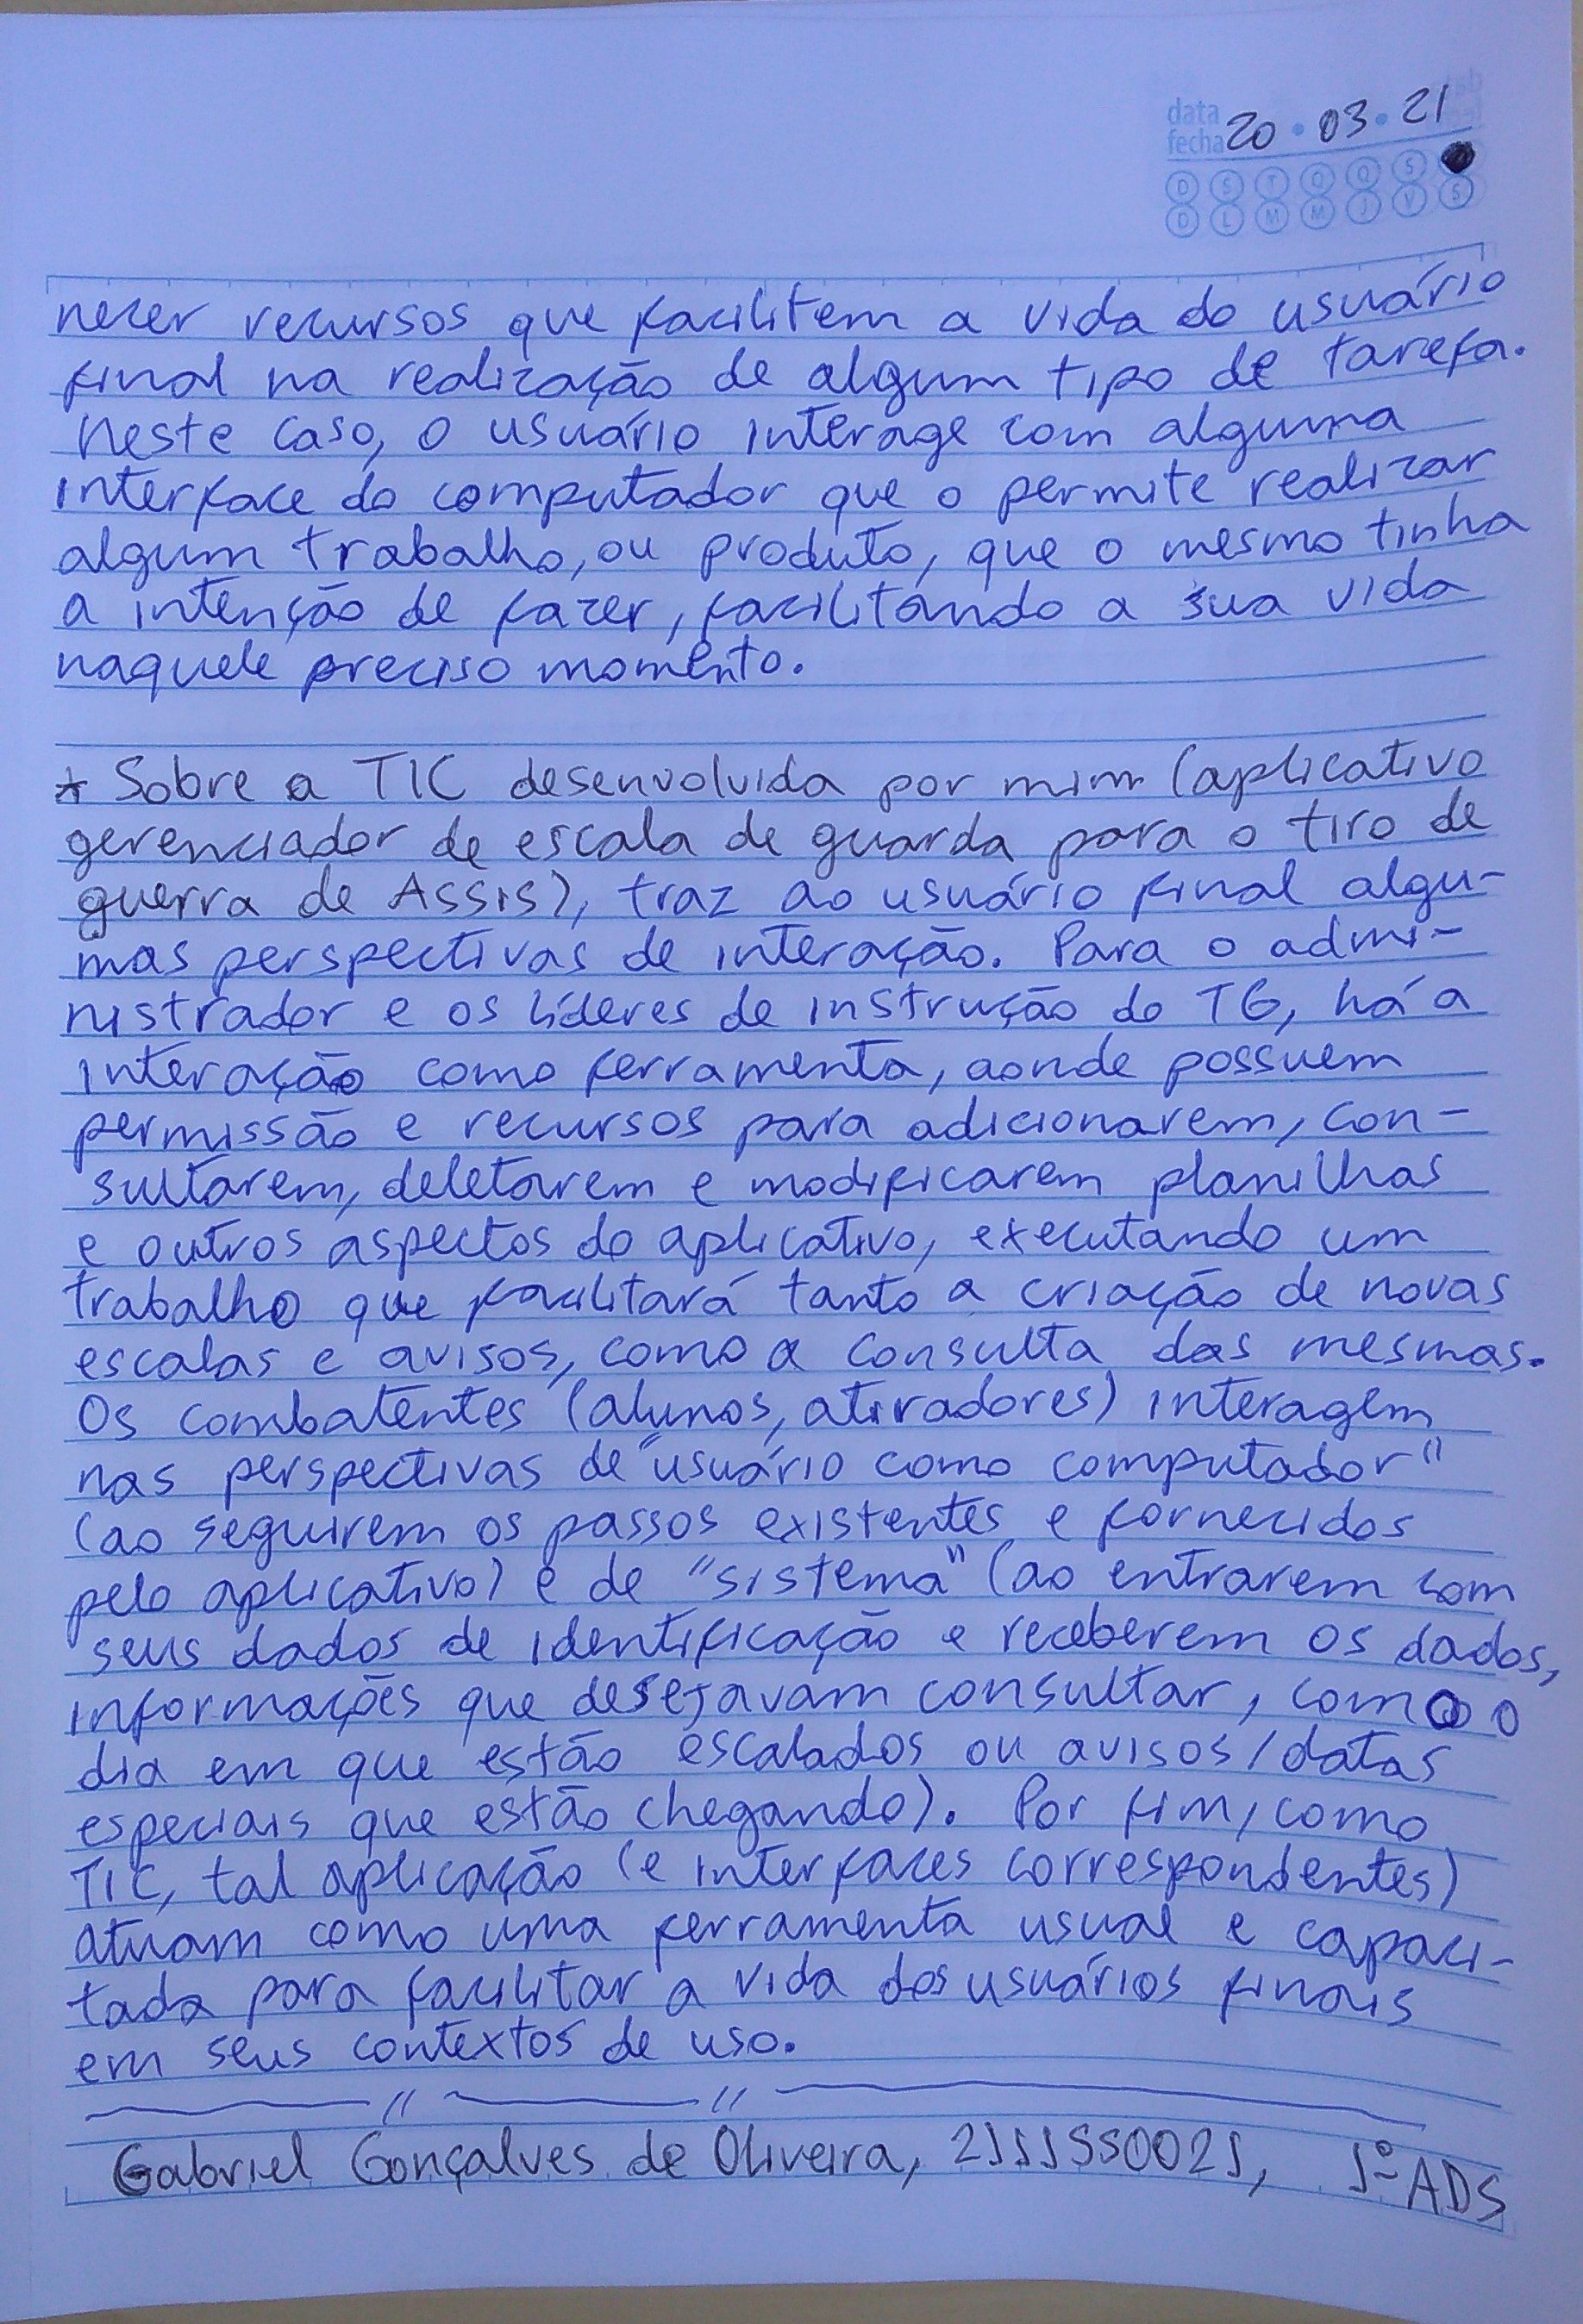 data
fecha 20 • 03 • 21
D S T Q Q S
D L M M J V S
necer recursos que facilitem a vida do usuário
final na realização de algum tipo de tarefa.
Neste caso, o usuário interage com alguma
interface do computador que o permite realizar
algum trabalho, ou produto, que o mesmo tinha
a intenção de fazer, facilitando a sua vida
naquele preciso momento.
* Sobre a TIC desenvolvida por mim (aplicativo
gerenciador de escala de guarda para o tiro de
guerra de Assis), traz ao usuário final algu-
mas perspectivas de interação. Para o admi-
nistrador e os líderes de instrução do TG, há a
interação como ferramenta, aonde possuem
permissão e recursos para adicionarem, con-
sultarem, deletarem e modificarem planilhas
e outros aspectos do aplicativo, executando um
trabalho que facilitará tanto a criação de novas
escalas e avisos, como a consulta das mesmas.
Os combatentes (alunos, atiradores) interagem
nas perspectivas de "usuário como computador"
(ao seguirem os passos existentes e fornecidos
pelo aplicativo) e de "sistema" (ao entrarem com
seus dados de identificação e receberem os dados,
informações que desejavam consultar, como o
dia em que estão escalados ou avisos/datas
especiais que estão chegando). Por fim, como
TIC, tal aplicação (e interfaces correspondentes)
atuam como uma ferramenta usual e capaci-
tada para facilitar a vida dos usuários finais
em seus contextos de uso.
Gabriel Gonçalves de Oliveira, 2111550021, 1º ADS